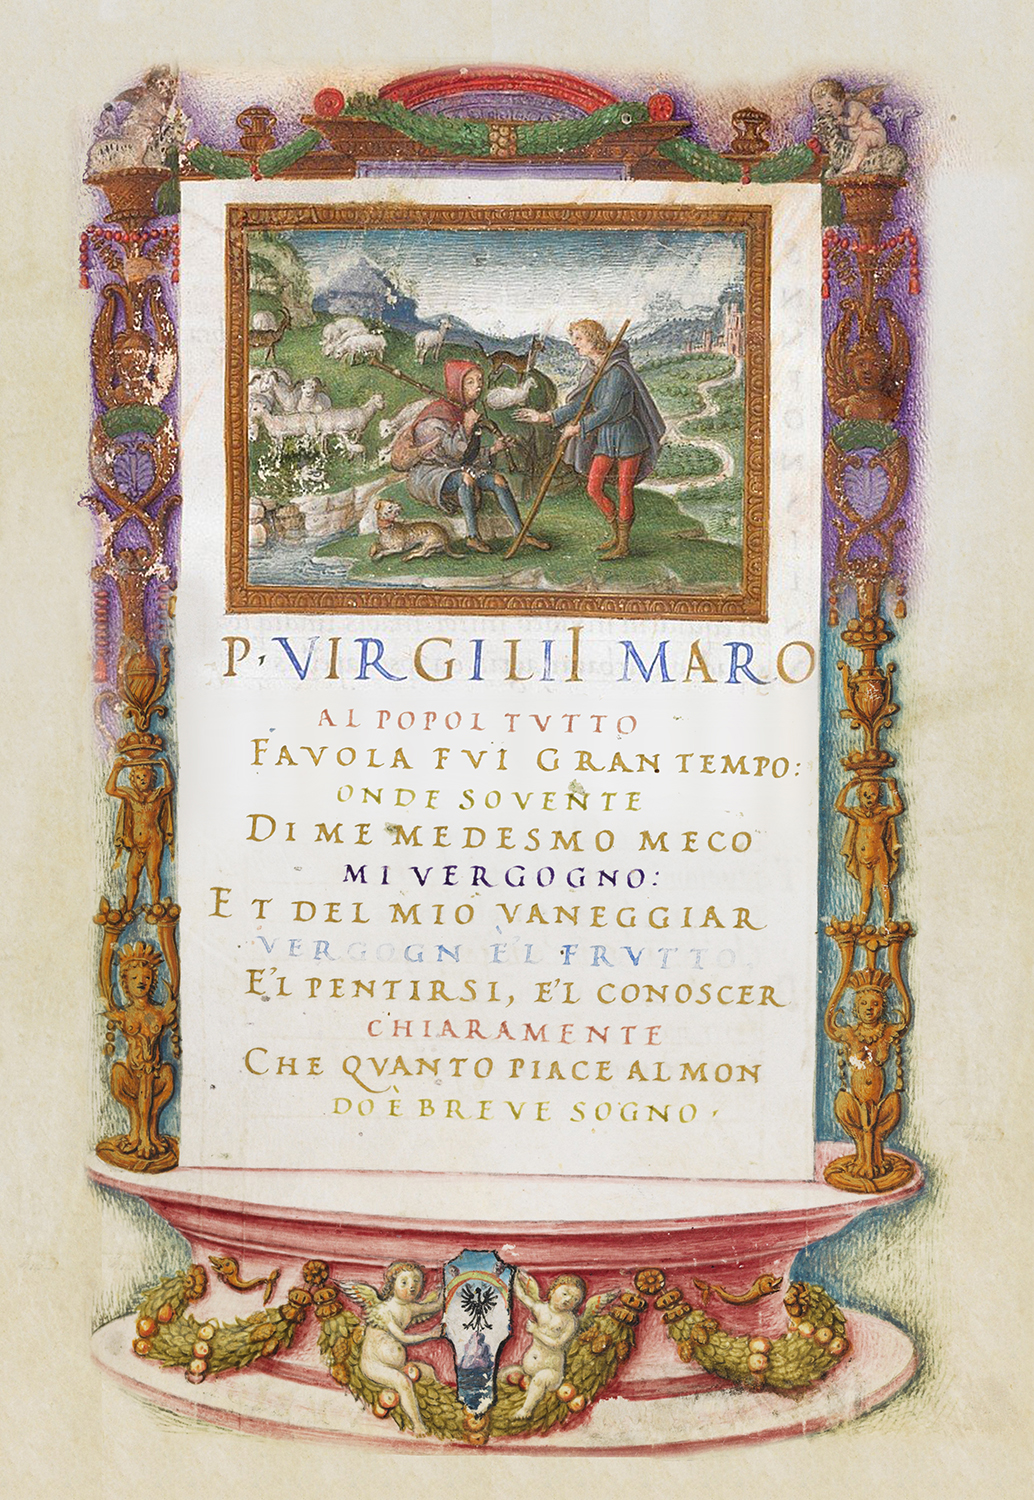 P. VIRGILII MARO
AL POPOL TVTTO
FAVOLA FVI GRAN TEMPO:
ONDE SOVENTE
DI ME MEDESMO MECO
MI VERGOGNO:
ET DEL MIO VANEGGIAR
VERGOGN È'L FRVTTO,
E'L PENTIRSI, E'L CONOSCER
CHIARAMENTE
CHE QVANTO PIACE AL MON
DO È BREVE SOGNO.